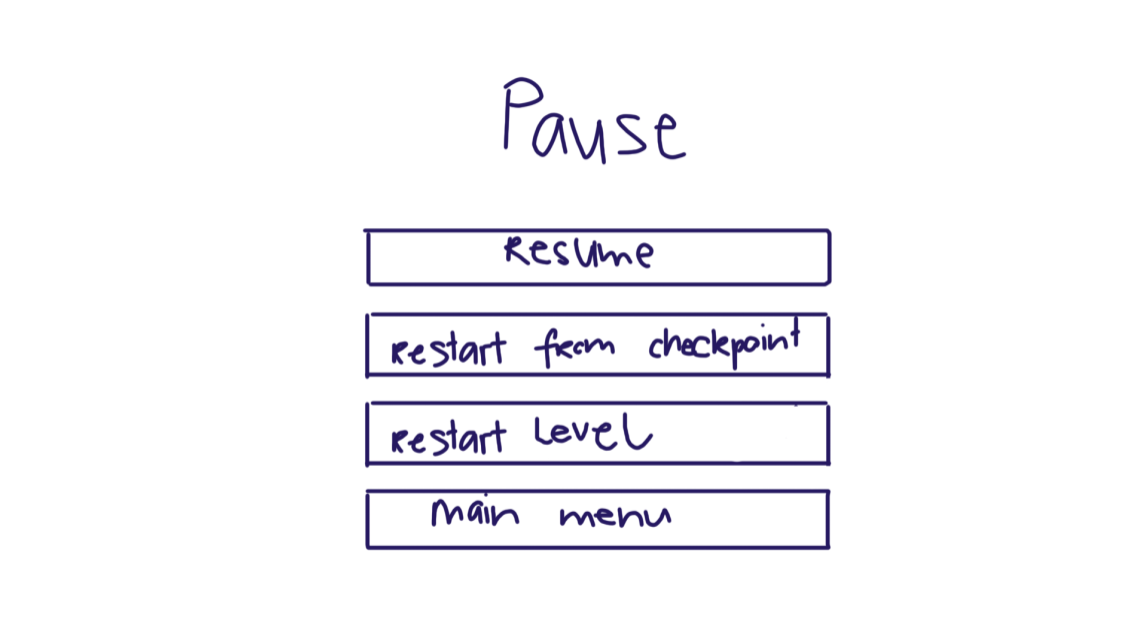 Pause
Resume
Restart from checkpoint
Restart Level
main menu